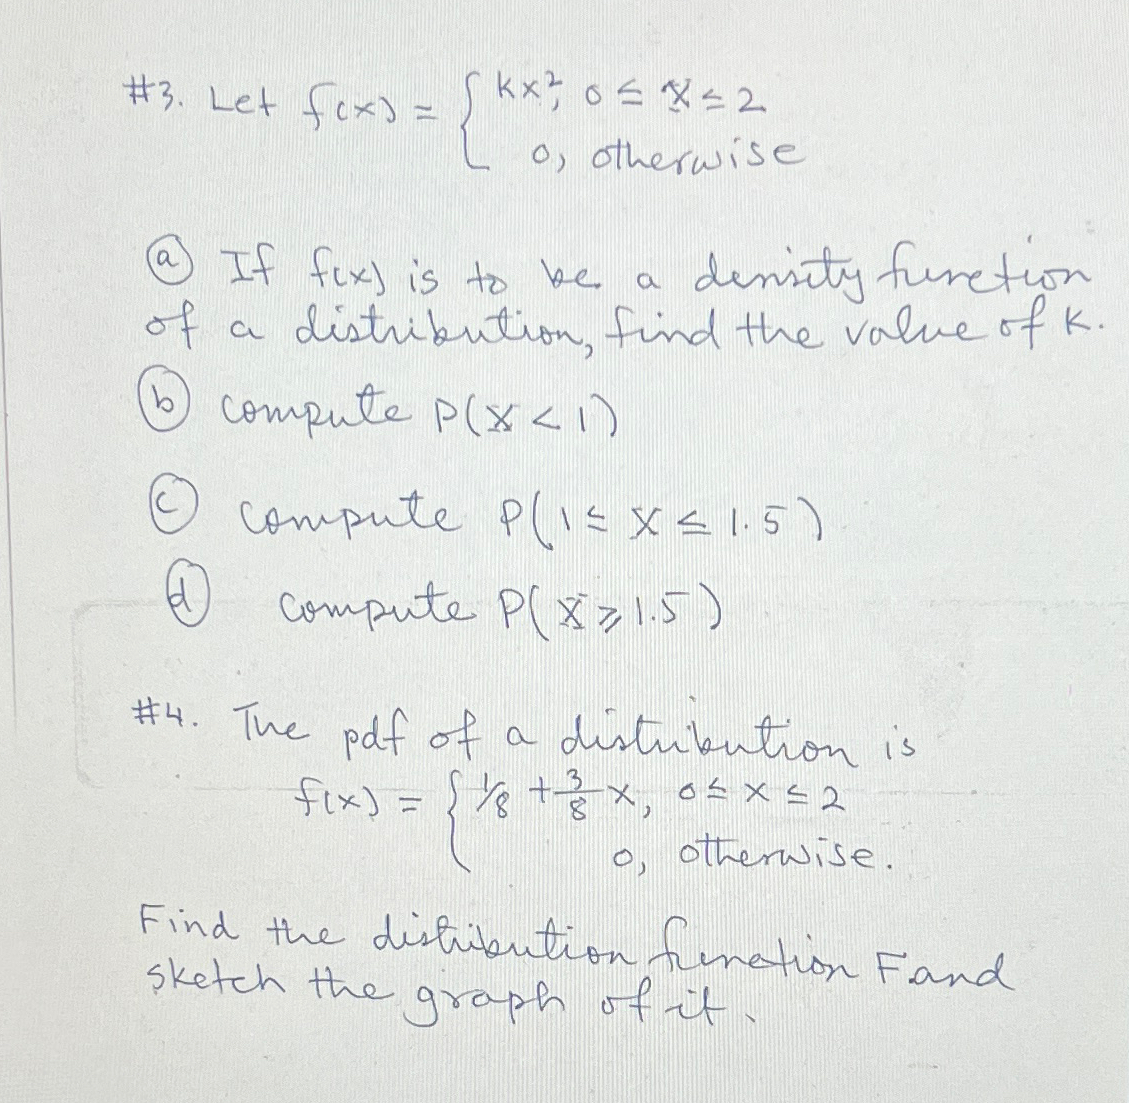 #3. Let f(x) = { kx², 0 ≤ X ≤ 2
0, otherwise
(a) If f(x) is to be a density function
of a distribution, find the value of k.
(b) compute P(X < 1)
(c) compute P(1 ≤ X ≤ 1.5)
(d) compute P(X ≥ 1.5)
#4. The pdf of a distribution is
f(x) = { 1/8 + 3/8 x, 0 ≤ x ≤ 2
0, otherwise.
Find the distribution function F and
sketch the graph of it.